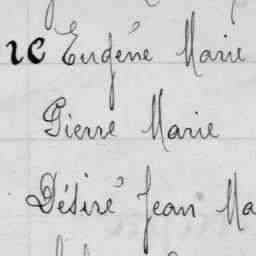 ic Eugène Marie
Pierre Marie
Désiré Jean Ma